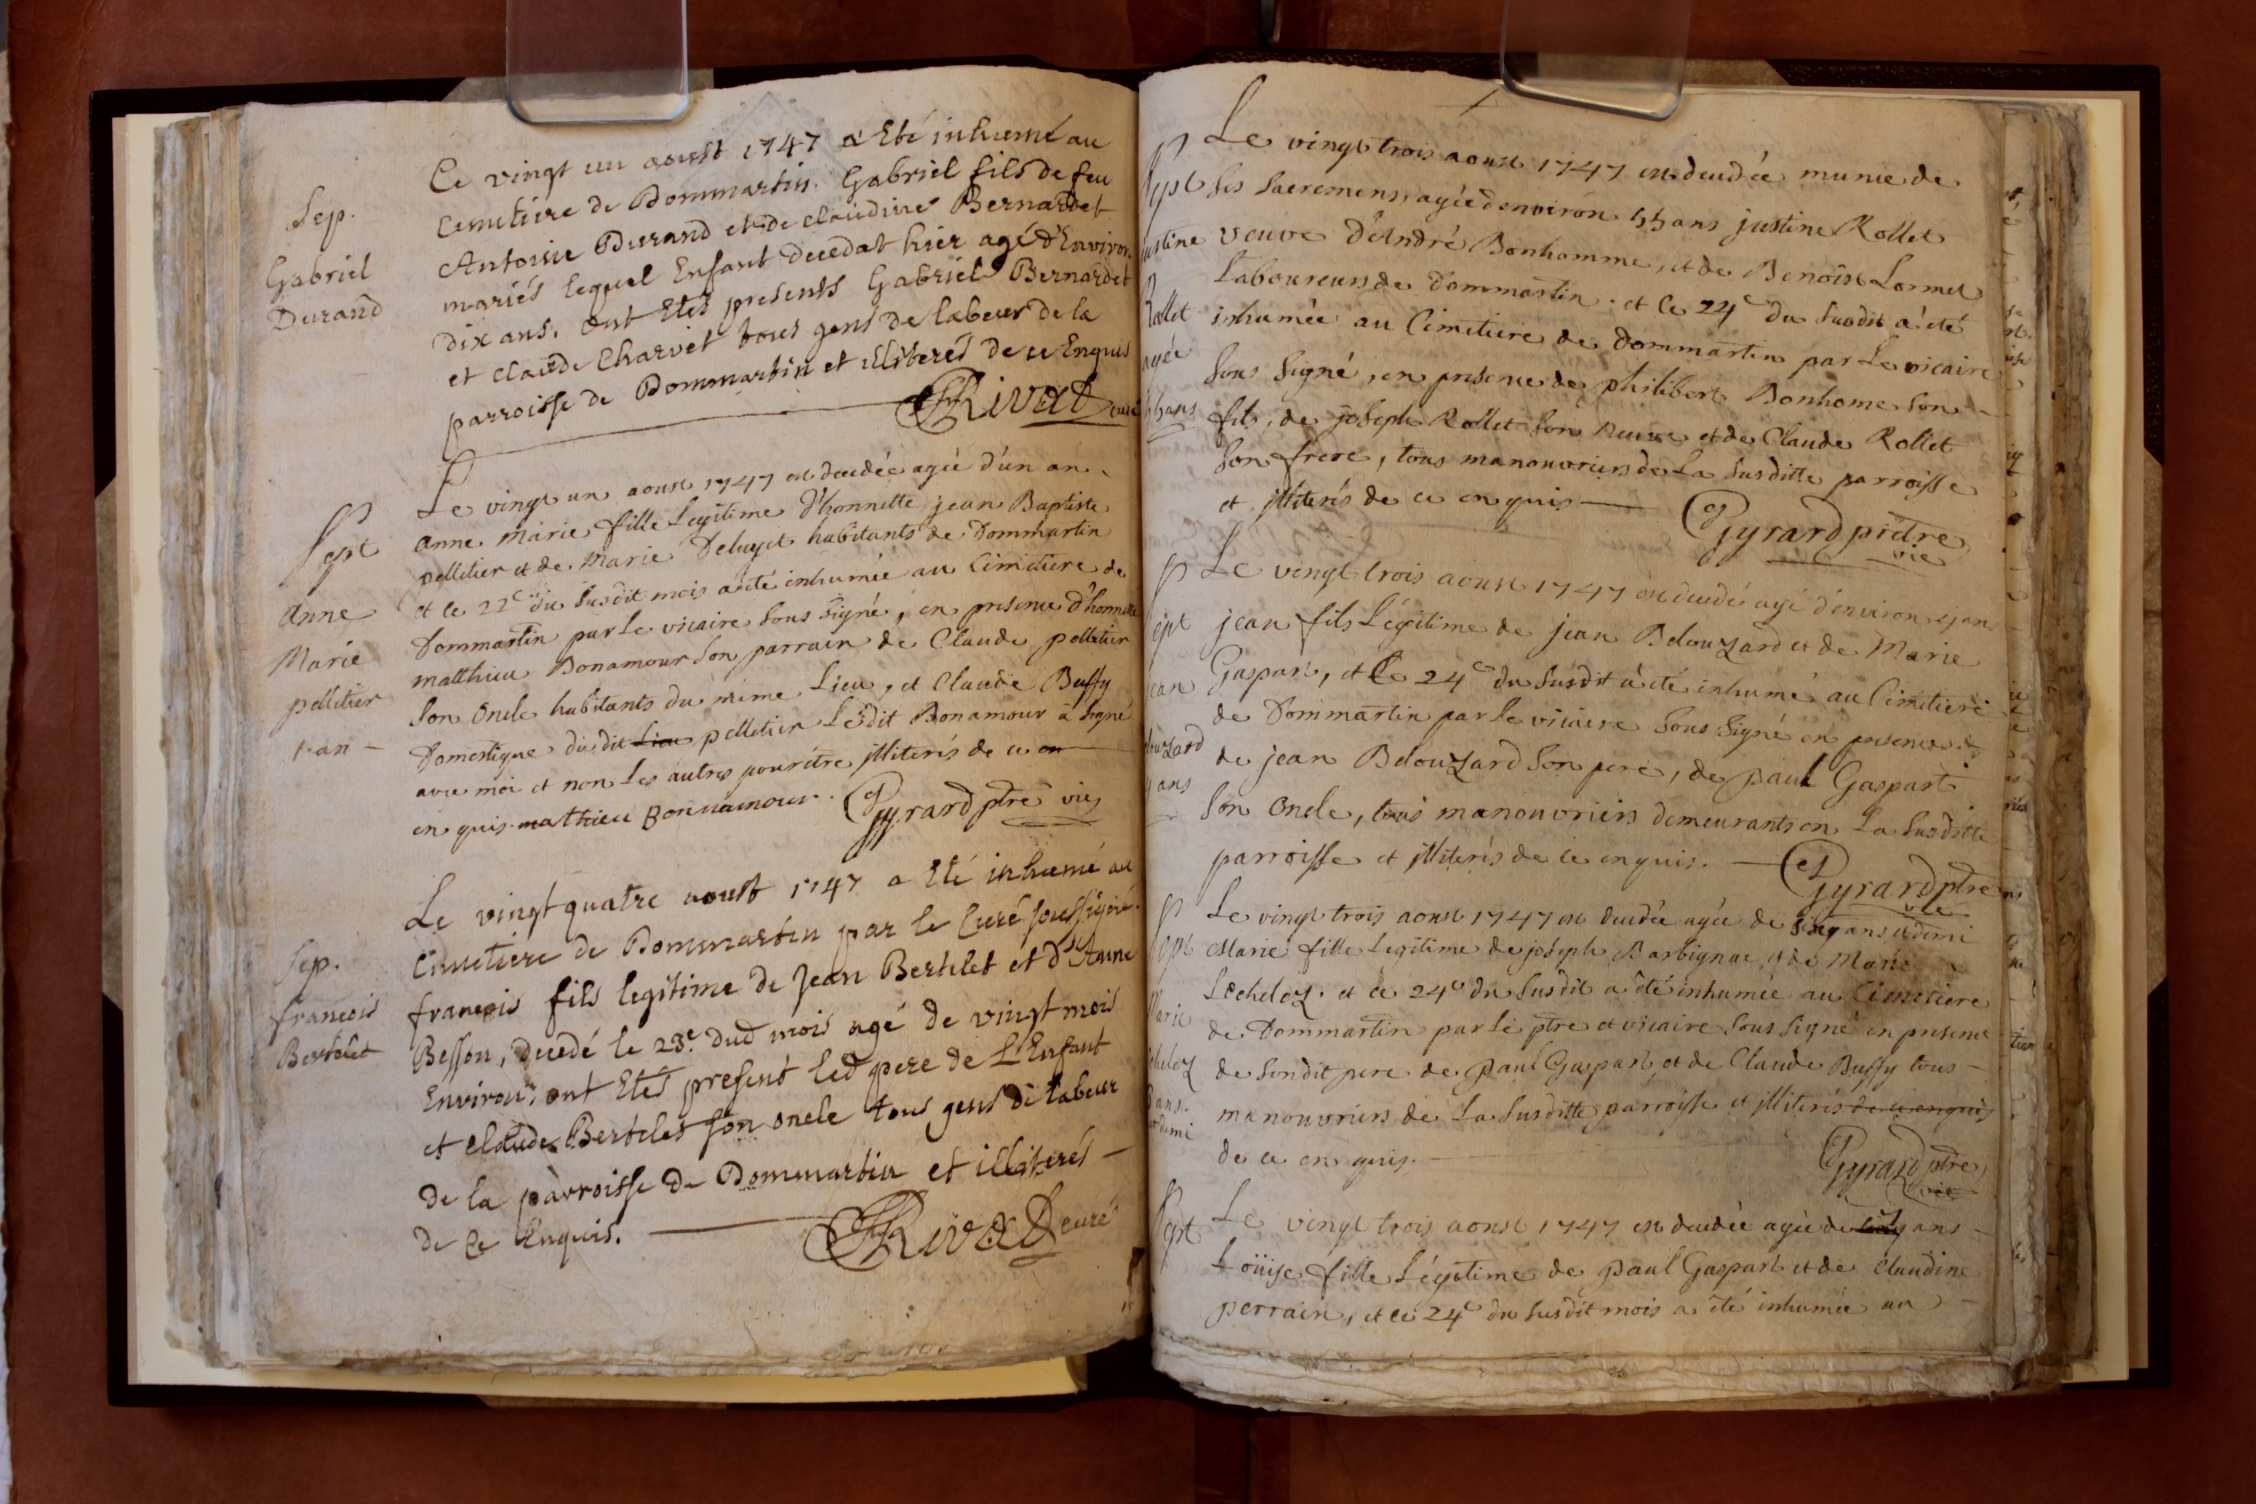 Sep.
Gabriel
Durand
Ce vingt un aoust 1747 a Eté inhumé au
Cemetiere de Dommartin. Gabriel fils de feu
Antoine Durand et de claudine Bernardet
mariés lequel Enfant decedat hier agé d'Environ
dix ans. ont Etés presents Gabriel Bernardet
et claude Charvet tous gens de labeur de la
parroisse de Dommartin et illiterés de ce Enquis
Rivat curé
Sept
Anne
Marie
pelletier
1 an
Le vingt un aoust 1747 est decedée agée d'un an
anne marie fille Legitime d'honnette jean Baptiste
pelletier et de Marie habitants de Dommartin
et le 22e du susdit mois a été inhumée au Cimetiere de
Dommartin par le vicaire sous signé, en presence d'honnette
matthieu Bonamour son parrain de Claude pelletier
son oncle habitants du même Lieu, et Claude Buffy
Domestique dudit Lieu pelletier Ledit Bonamour a signé
avec moi et non Les autres pour être illiterés de ce en
en quis. mathieu Bonnamour. Gyrard ptre vic
Sep.
francois
Bertelet
Le vingt quatre aoust 1747 a Eté inhumé au
Cemetiere de Dommartin par le Curé soussigné.
francois fils legitime de Jean Bertelet et d'Anne
Besson, decedé le 23e. dud mois agé de vingt mois
Environ; ont Etés present led pere de L'Enfant
et claude Bertelet son oncle tous gens de labeur
de la parroisse de Dommartin et illiterés
de ce Enquis.
Rivat curé
Sept
justine
Rollet
agée
55 ans
Le vingt trois aoust 1747 est decedée munie de
ses sacremens, agée d'environ 55 ans justine Rollet
veuve d'André Bonhomme, et de Benoist Lornet
Laboureurs de Dommartin. et le 24e du susdit a été
inhumée au Cimetiere de Dommartin par Le vicaire
sous signé, en presence de philibert Bonhome son
fils, de joseph Rollet son neveu et de Claude Rollet
son frere, tous manouvriers de La susditte parroisse
et illiterés de ce en quis
Gyrard prêtre
vic
Sept
jean
Belouzard
ans
Le vingt trois aoust 1747 est decedé agé d'environ ans
jean fils Légitime de jean Belouzard et de Marie
Gaspart, et Le 24e du susdit a été inhumé au Cimetiere
de Dommartin par le vicaire sous signé en presence
de jean Belouzard son pere, de paul Gaspart
son oncle, tous manouvriers demeurants en La susditte
parroisse et illiterés de ce enquis.
Gyrard ptre
vic
Sept
Marie
ans
demi
Le vingt trois aoust 1747 est decedée agée de ans et demi
Marie fille Legitime de joseph Barbignac et de Marie
Locheloz. et le 24e du susdit a été inhumée au Cimetiere
de Dommartin par Le ptre et vicaire sous signé en presence
de son dit pere de paul Gaspart et de Claude Buffy tous
manouvriers de La susditte parroisse et illiterés de ce enquis
de ce en quis.
Gyrard ptre
vic
Sept
Le vingt trois aoust 1747 est decedée agée de ans
Loüise fille Légitime de paul Gaspart et de Claudine
perrain, et le 24e du susdit mois a été inhumée au